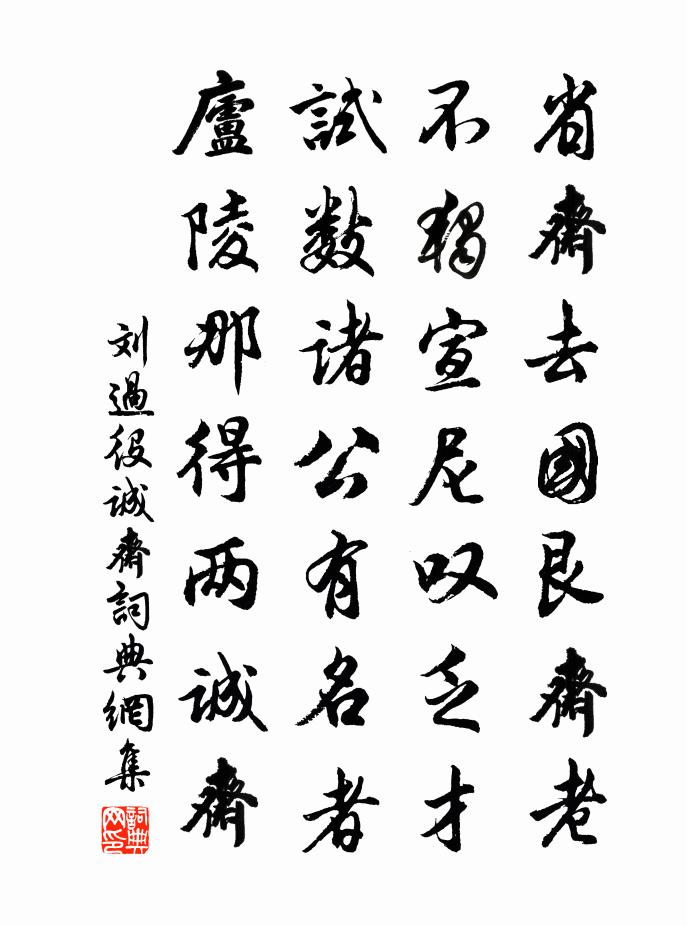 省齋去國艮齋老
不獨宣尼叹乏才
試数诸公有名者
廬陵那得两誠齋
刘過投誠齋詞典網集
詞典网印